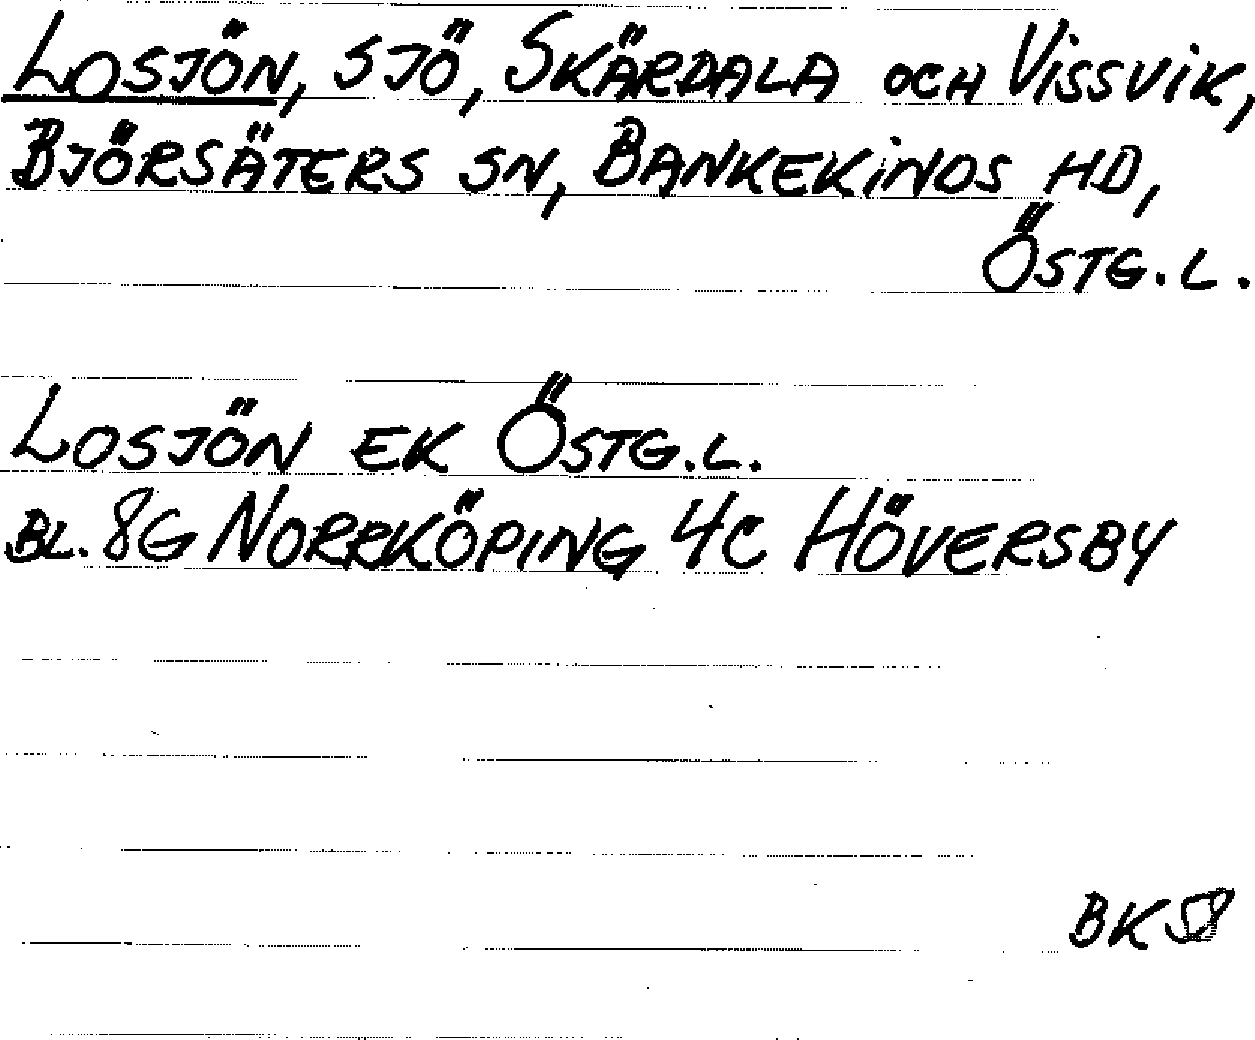 Losjön, sjö, Skärdala och Vissvik,
Björsäters sn, Bankekinds hd,
Östg.l.
Losjön ek Östg.l.
bl. 8G Norrköping 4c Höversby